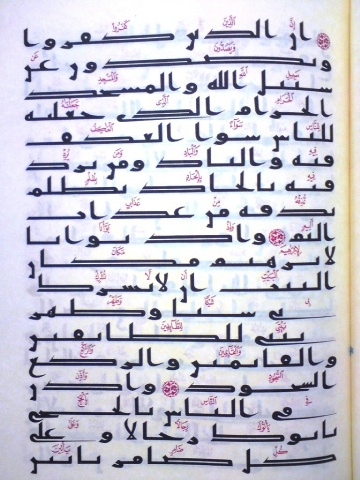 ان الذين كفروا
ويصدون عن
سبيل الله والمسجد
الحرام الذي جعلنه
للناس سوا العكف
فيه والباد ومن يرد
فيه بالحاد بظلم
نذقه من عذاب
اليم واذ بوانا
لابرهيم مكان
البيت ان لا تشرك
بي شيا وطهر
بيتي للطائفين
والقائمين والركع
السجود واذن
في الناس بالحج
ياتوك رجالا وعلى
كل ضامر ياتين